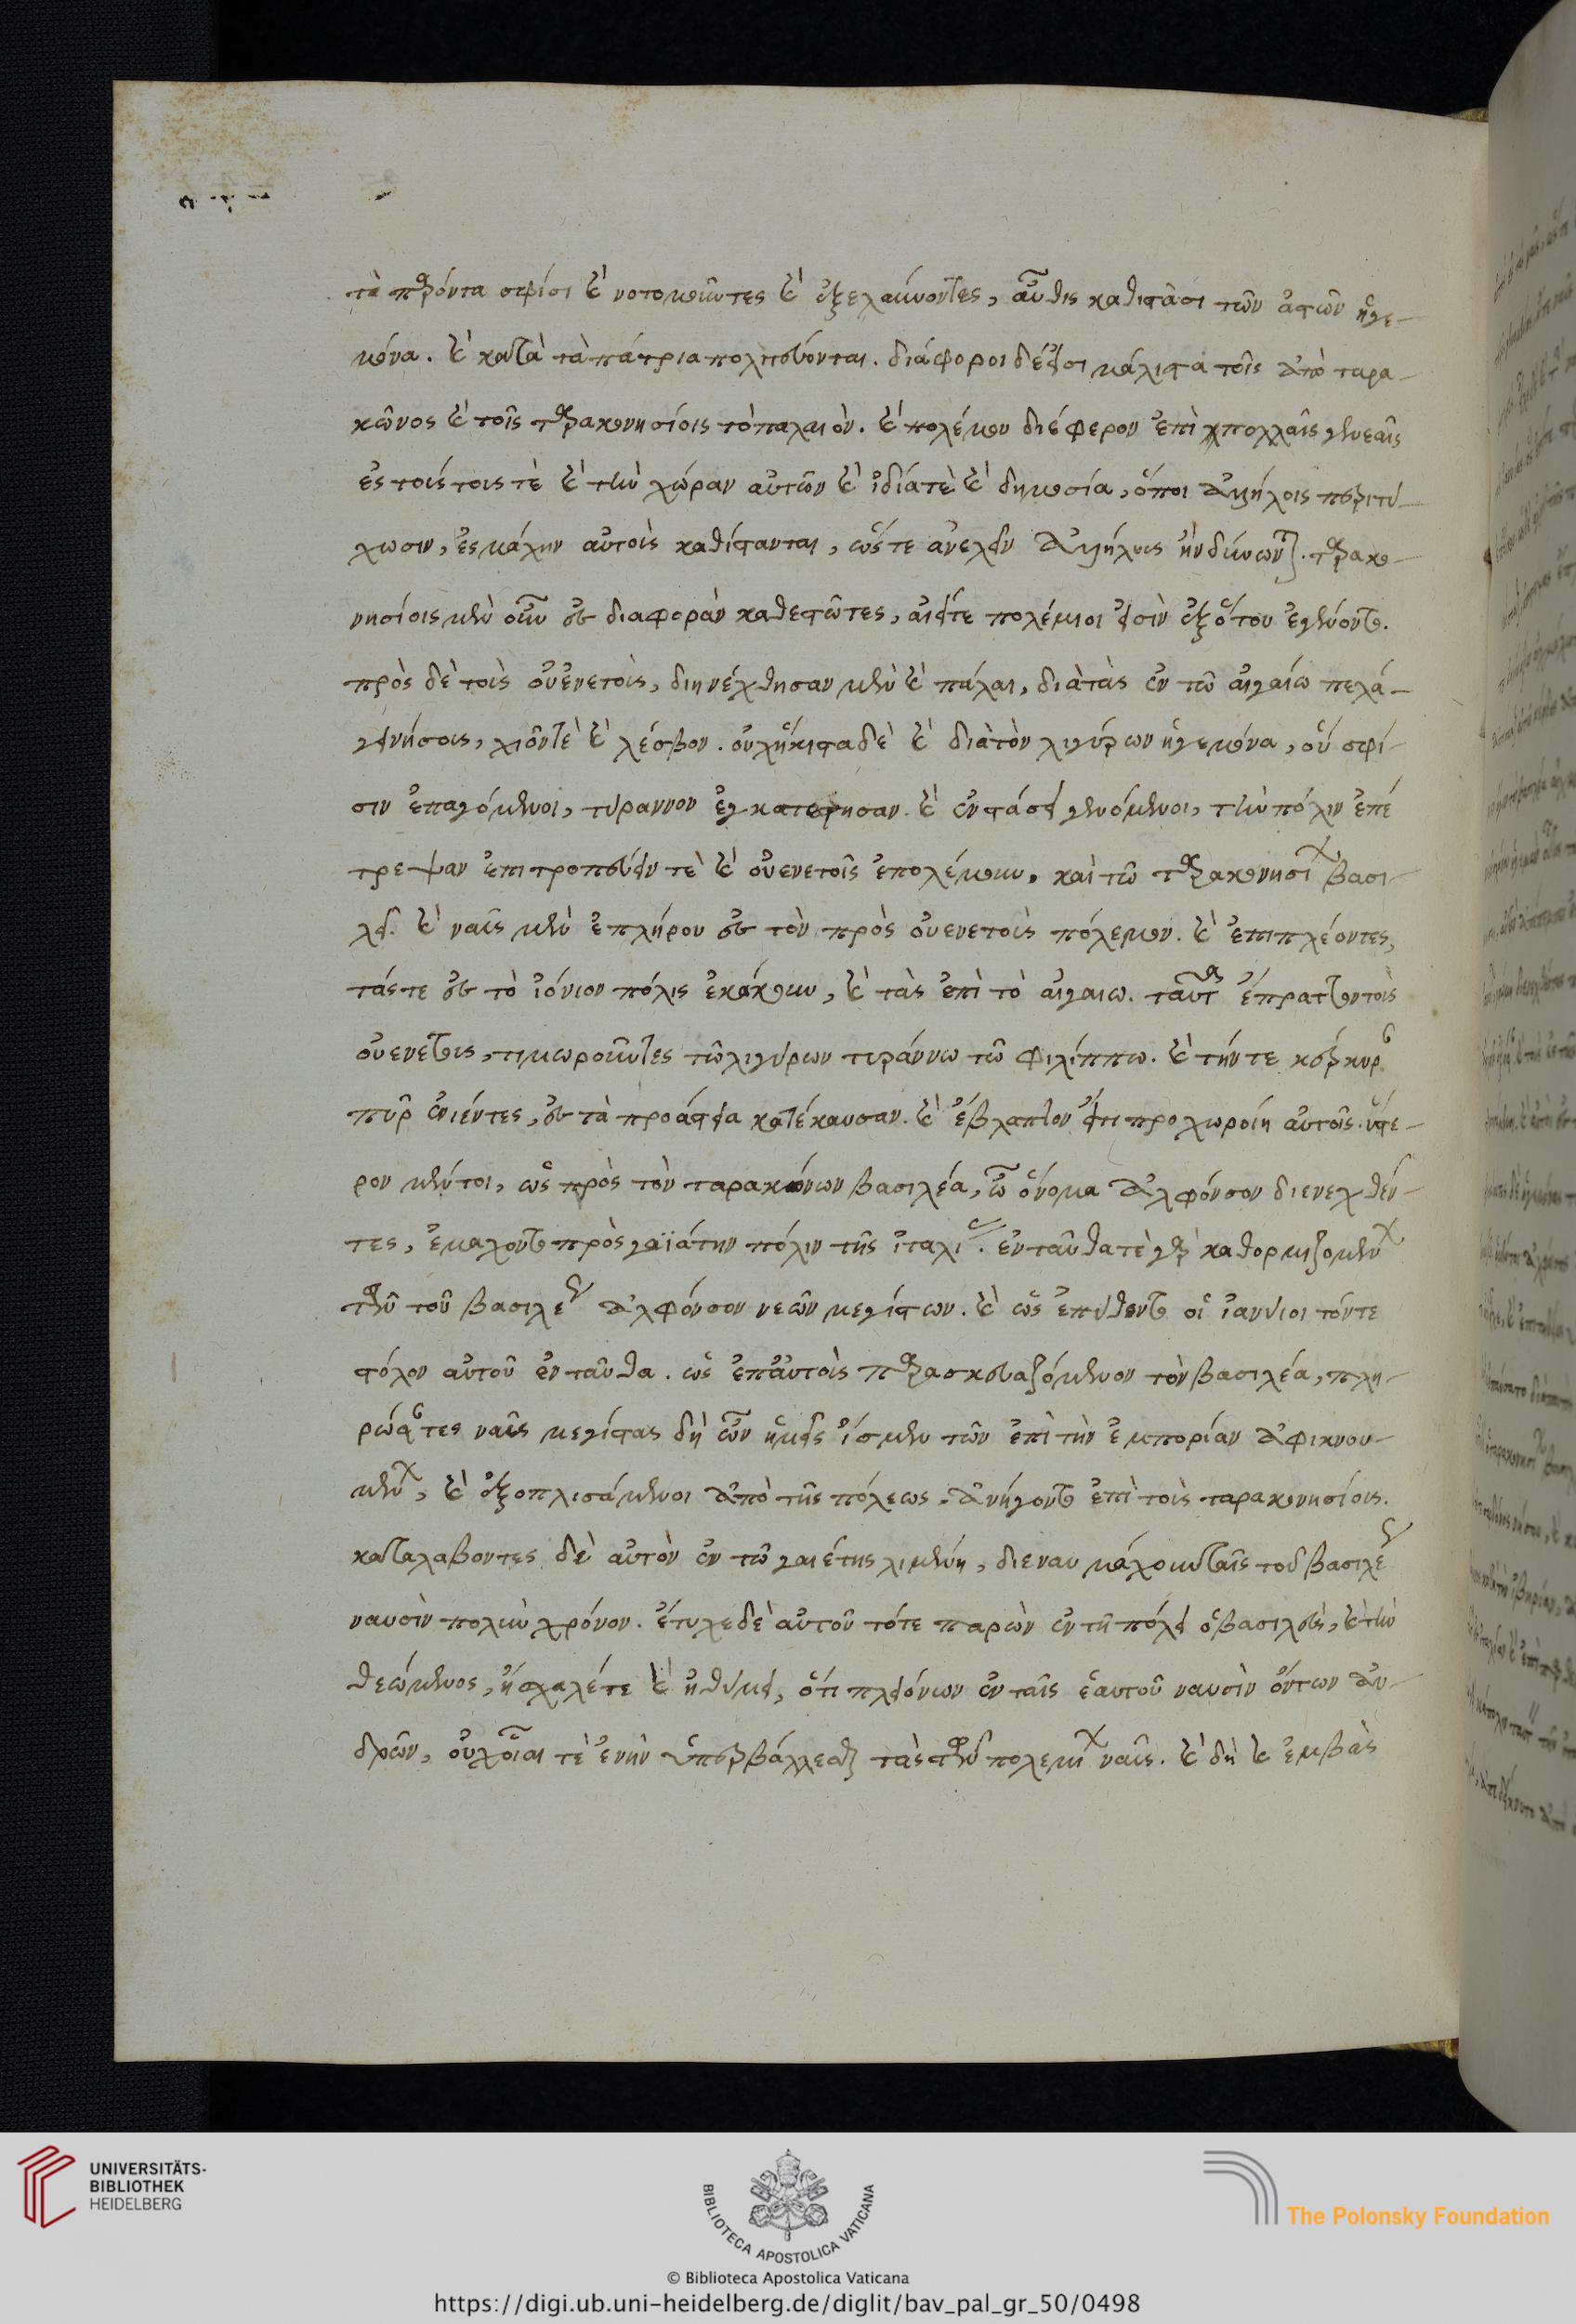 τὰ παρόντα σφίσι καὶ νοτομοῦντες καὶ ἐξελαύνοντες, αὖθις καθιστᾶσι τῶν ἀστῶν ἡγε-
μόνα. καὶ κατὰ τὰ πάτρια πολιτεύονται. διάφοροι δέ εἰσι μάλιστα τοῖς ἀπὸ ταρα-
κῶνος καὶ τοῖς ταρακονησίοις τὸ παλαιὸν. καὶ πολέμου διέφερον ἐπὶ πολλαῖς γενεαῖς
ἐς τούτους τὲ καὶ τὴν χώραν αὐτῶν καὶ ἰδίατὲ καὶ δημοσία, ὅποι ἀλλήλοις περιτύ-
χωσιν, ἐς μάχην αὐτοὶς καθίστανται, ὥστε ἀνελεῖν ἀλλήλους ἢν δύνωνται. ταρακο-
νησίοις μὲν οὖν ἐς διαφορὰν καθεστῶτες, αἰεί τε πολέμιοι εἰσὶν ἐξ ὅτου ἐγένοντο.
πρὸς δὲ τοὶς οὐενετοὶς, διηνέχθησαν μὲν καὶ πάλαι, διὰ τὰς ἐν τῶ αἰγαίω πελά-
γει νήσους, χιόν τὲ καὶ λέσβον. οὐχ ἥκιστα δὲ καὶ διὰ τὸν λιγύρων ἡγεμόνα, ὃν σφί-
σιν ἐπαγόμενοι, τύραννον ἐγκατέστησαν. καὶ ἐν στάσει γενόμενοι, τὴν πόλιν ἐπέ
τρεψαν ἐπιτροπεύειν τὲ καὶ οὐενετοῖς ἐπολέμουν, καὶ τῶ ταρακονησίων βασι-
λεῖ. καὶ ναῦς μὲν ἐπλήρουν ἐς τὸν πρὸς οὐενετοὶς πόλεμον. καὶ ἐπιπλέοντες,
τάς τε ἐς τὸ ἰόνιον πόλις ἐκάκουν, καὶ τὰς ἐπὶ τὸ αἰγαιω. ταῦτα ἔπραττον τοὶς
οὐενετοις, τιμωροῦντες τῶ λιγύρων τυράννω τῶ φιλίππω. καὶ τήν τε κόρκυραν
πῦρ ἐνιέντες, ἐς τὰ προάστεια κατέκαυσαν. καὶ ἔβλαπτον εἴ τι προχωροίη αὐτοῖς. ὕστε-
ρον μέντοι, ὡς πρὸς τὸν ταρακώνων βασιλέα, ὧ ὄνομα ἀλφόνσον διενεχθέν-
τες, ἐμάχοντο πρὸς γαϊάτην πόλιν τῆς ἰταλίας. ἐνταῦθα τὲ γὰρ καθορμιζομένων
τῶν τοῦ βασιλέως ἀλφόνσου νεῶν μεγίστων. καὶ ὡς ἐπύθοντο οἱ ἰανύιοι τόν τε
στόλον αὐτοῦ ἐνταῦθα. ὡς ἐπ' αὐτοὶς παρασκευαζόμενον τὸν βασιλέα, πλη-
ρώσαντες ναῦς μεγίστας δὴ ὧν ἡμεῖς ἴσμεν τῶν ἐπὶ τὴν ἐμπορίαν ἀφικνου-
μένων, καὶ ἐξοπλισάμενοι ἀπὸ τῆς πόλεως. ἀνήγοντο ἐπὶ τοὶς ταρακονησίοις.
καταλαβοντες δὲ αὐτὸν ἐν τῶ γαιέτης λιμένι, διεναυμάχουν ταῖς τοῦ βασιλέως
ναυσὶν πολὺν χρόνον. ἔτυχε δὲ αὐτοῦ τότε παρὼν ἐν τῆ πόλει ὁ βασιλεὺς, καὶ τὴν
θεώμενος, ἤσχαλέ τε καὶ ἠθύμει, ὅτι πλειόνων ἐν ταῖς ἑαυτοῦ ναυσὶν ὄντων ἀν-
δρῶν, οὐχ οἷαι τὲ ἐνῆν ὑπερβάλλεσθαι τὰς τῶν πολεμίων ναῦς. καὶ δὴ καὶ ἐμβὰς
UNIVERSITÄTS-
BIBLIOTHEK
HEIDELBERG
BIBLIOTECA APOSTOLICA VATICANA
The Polonsky Foundation
© Biblioteca Apostolica Vaticana
https://digi.ub.uni-heidelberg.de/diglit/bav_pal_gr_50/0498